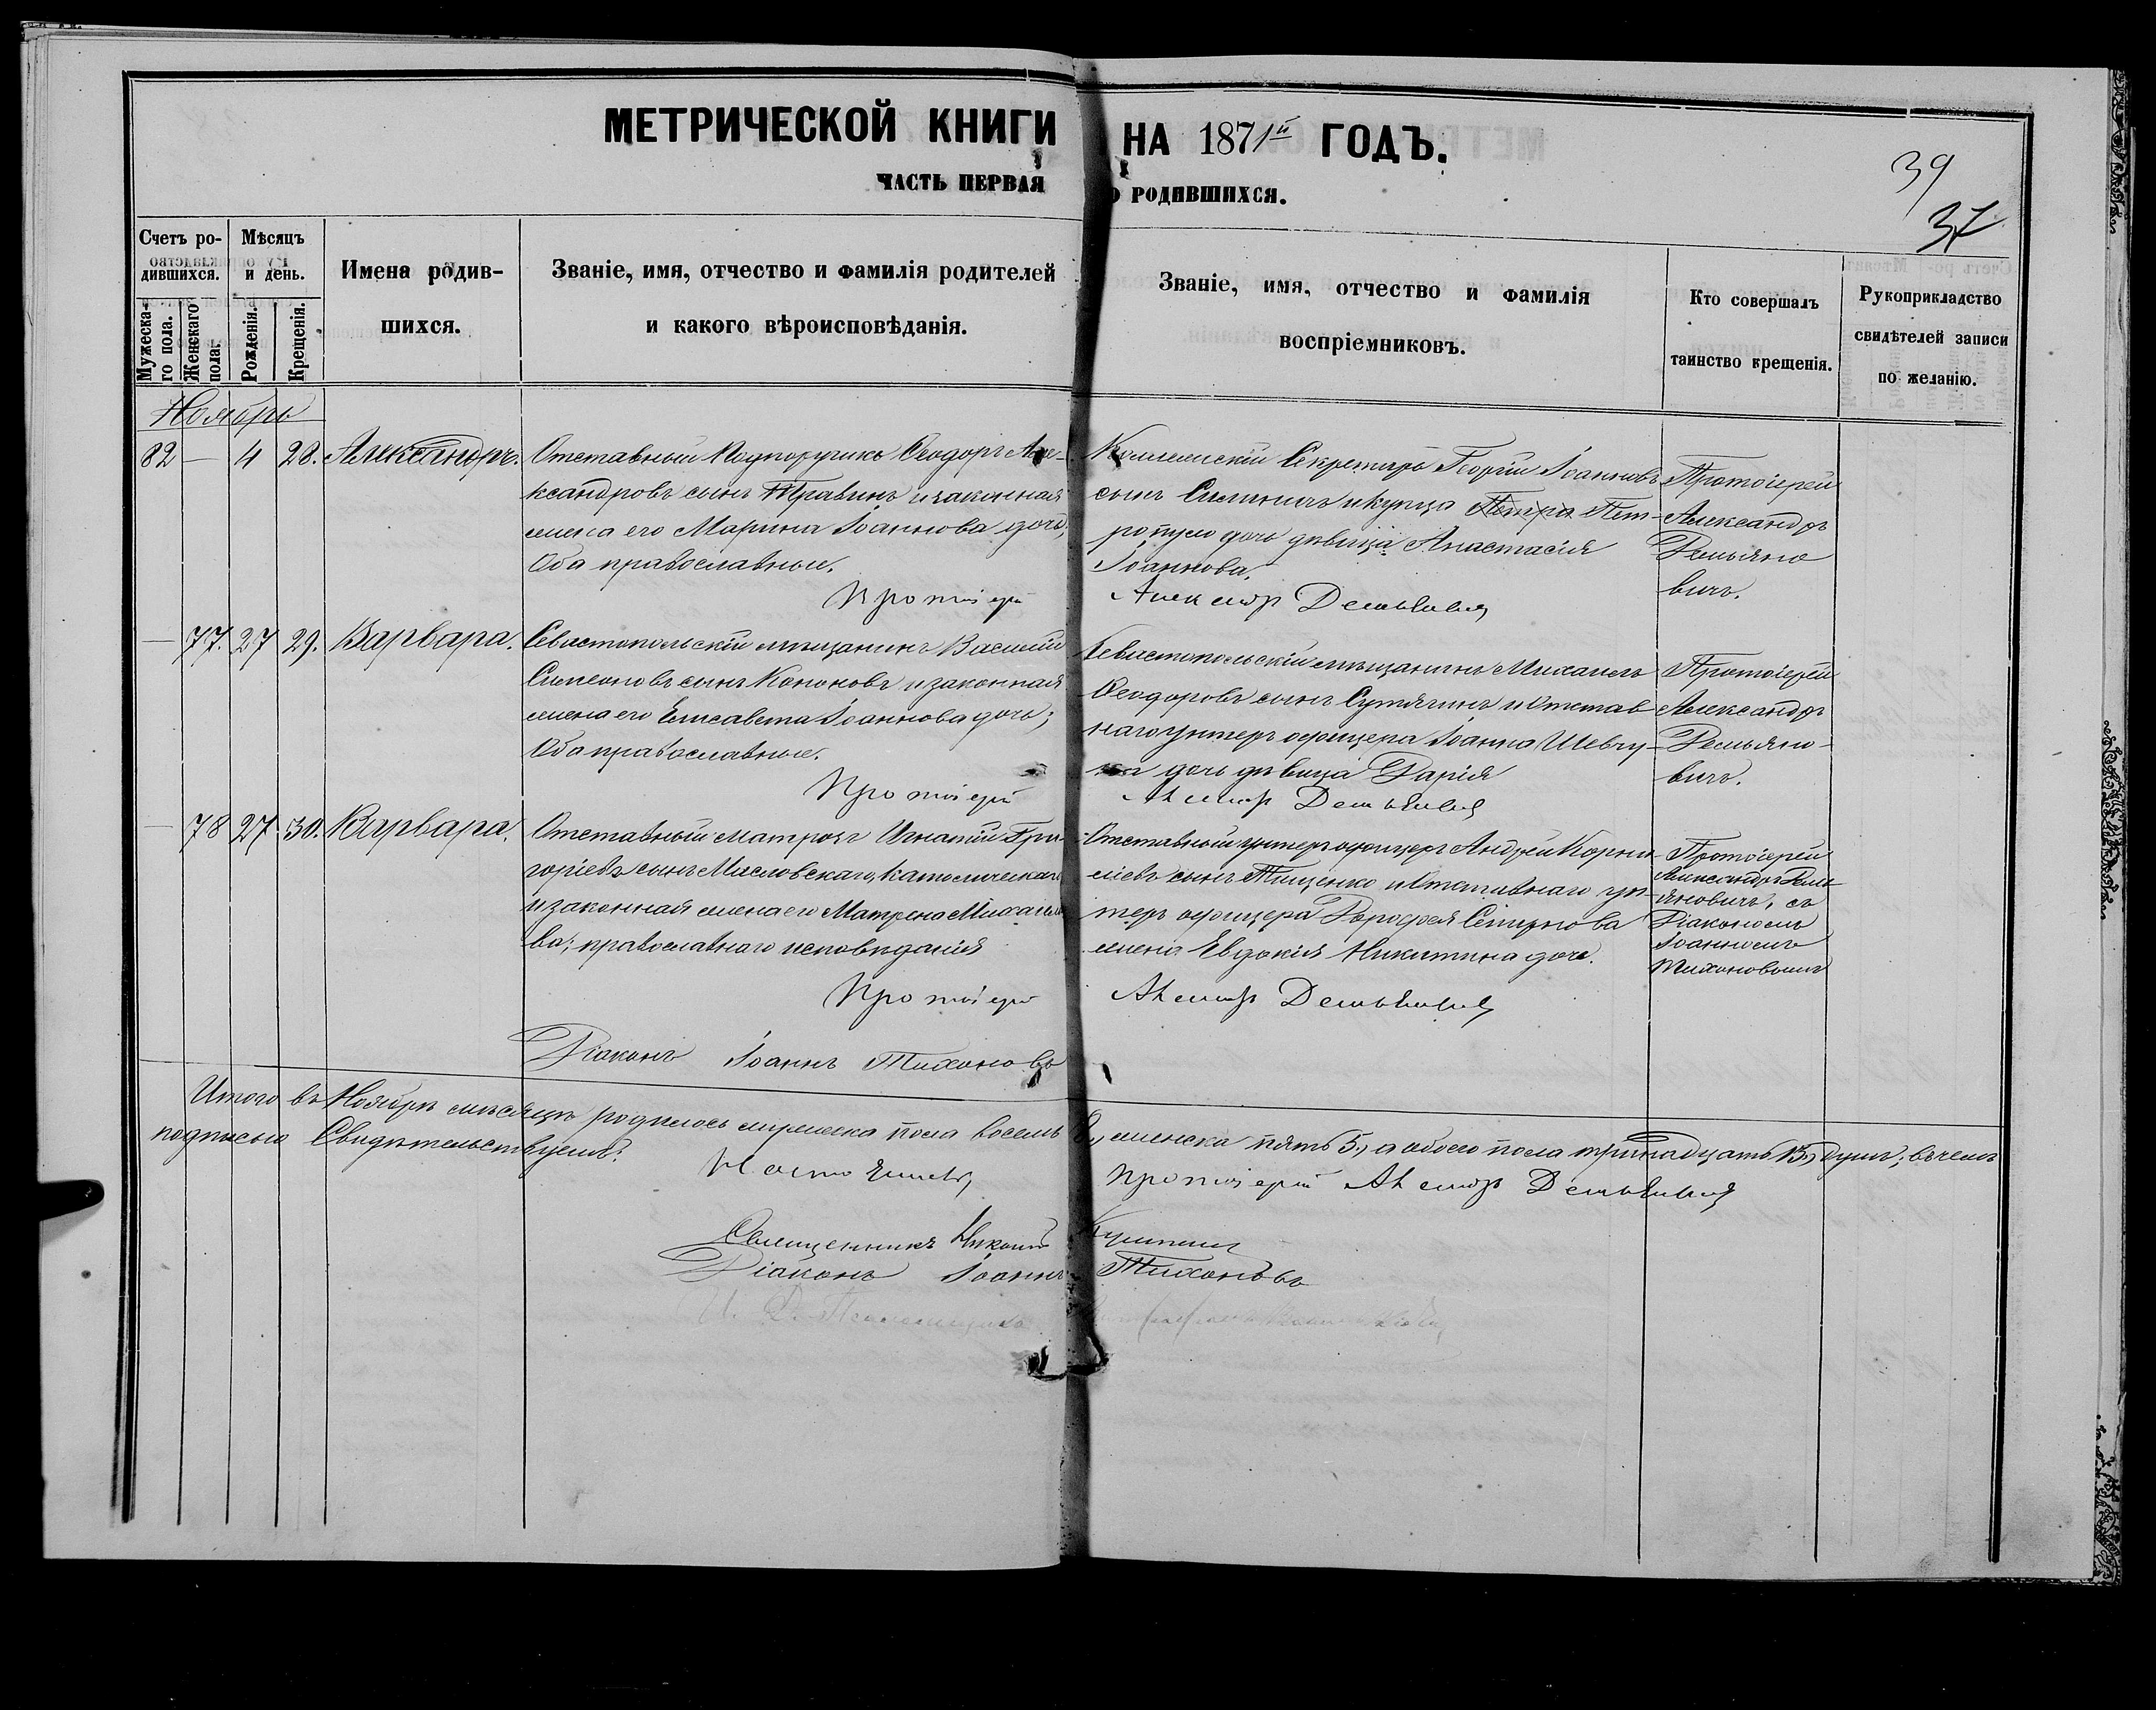 МЕТРИЧЕСКОЙ КНИГИ НА 1871й ГОДЪ.
39
37
ЧАСТЬ ПЕРВАЯ О РОДИВШИХСЯ.
Счетъ родившихся.
Мужескаго пола.
Женскаго пола.
Мѣсяцъ и день.
Рожденія.
Крещенія.
Имена родившихся.
Званіе, имя, отчество и фамилія родителей
и какого вѣроисповѣданія.
Званіе, имя, отчество и фамилія
воспріемниковъ.
Кто совершалъ
таинство крещенія.
Рукоприкладство
свидѣтелей записи
по желанію.
Ноябрь
82 — 4 28. Александръ.
Отставный Подпоручикъ Ѳеодоръ Але-
ксандровъ сынъ Травинъ и законная
жена его Марина Іоаннова дочь;
Оба православные.
Коллежскій Секретарь Георгій Іоанновъ
сынъ и купца Петра Пет-
дочь дѣвица Анастасія
Іоаннова.
Протоіерей
Александръ
Демьяно
вичъ.
Протоіерей Александръ Демьяновичъ
— 77. 27 29. Варвара.
Севастопольскій мѣщанинъ Василій
Симеоновъ сынъ Кононовъ и законная
жена его Елисавета Іоаннова дочь;
Оба православные.
Севастопольскій мѣщанинъ Михаилъ
Ѳеодоровъ сынъ Сутягинъ и Отстав
наго унтеръ офицера Іоанна Шевчу-
ка дочь дѣвица Дарія
Протоіерей
Александръ
Демьяно-
вичъ.
Протоіерей Александръ Демьяновичъ
— 78 27 30. Варвара.
Отставный матрозъ Игнатій Гри-
горіевъ сынъ Масловскаго, католическаго
и законная жена его Матрена Михайло
ва; православнаго исповѣданія
Отставный унтеръ офицеръ Андрей Корни-
ліевъ сынъ Тищенко и Отставнаго ун-
теръ офицера Дороѳея Смирнова
жена Евдокія Никитина дочь.
Протоіерей
Александръ Демь-
яновичъ, съ
Діакономъ
Іоанномъ
Тихоновымъ
Протоіерей Александръ Демьяновичъ
Діаконъ Іоаннъ Тихоновъ
Итого въ Ноябрѣ мѣсяцѣ родилось мужеска пола восемь 8, женска пять 5, а обоего пола тринадцать 13, душъ; въ чемъ
подписью Свидѣтельствуемъ:
Настоятель Протоіерей Александръ Демьяновичъ
Священникъ
Діаконъ Іоаннъ Тихоновъ
И. Д.